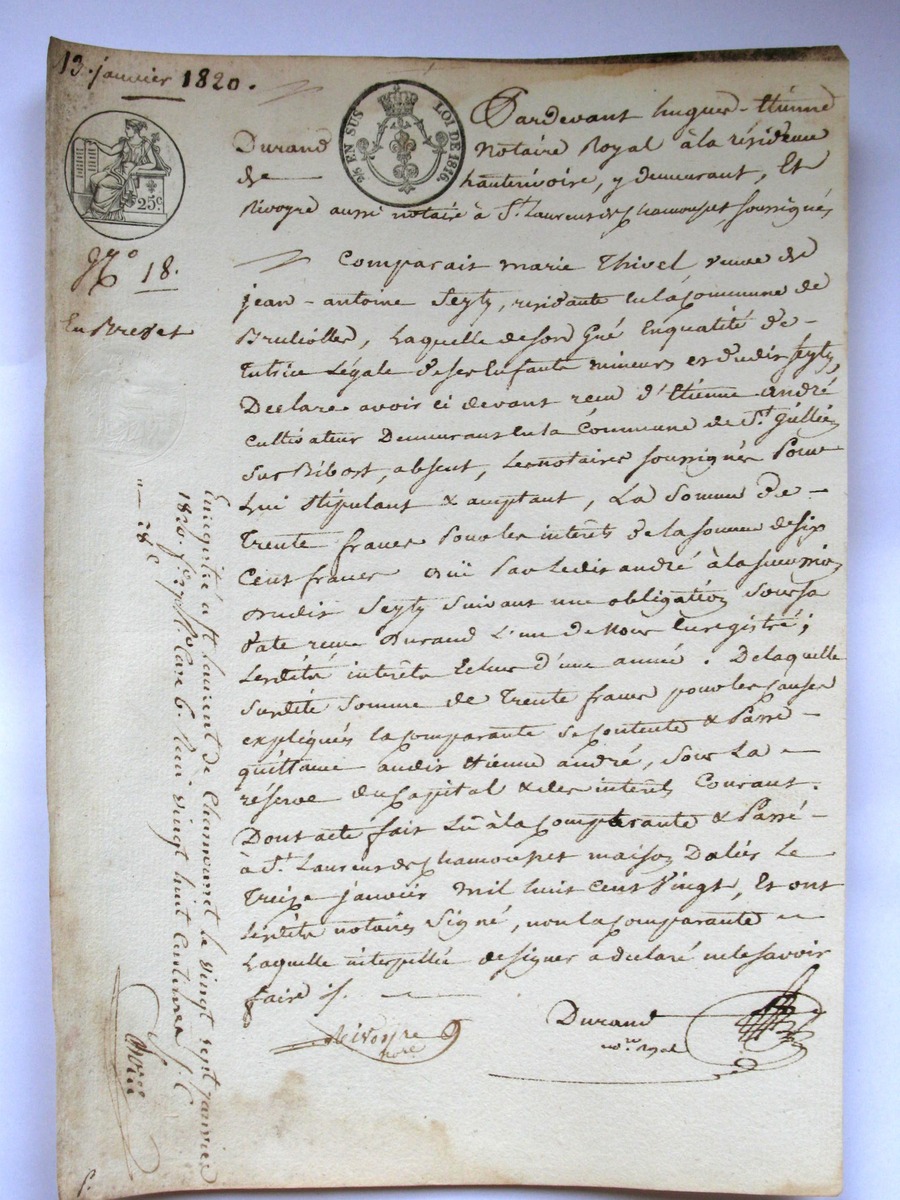 13. janvier 1820.
25 EN SUS LOI DE 1816
25c.
N.o 18.
En Brevet
Pardevant hugues-Etienne
Durand Notaire Royal à la résidence
de hauterivoire, y demeurant, Et
Rivoyre aussi notaire à St. Laurent de Chamousset soussignés
Comparait marie Thivel, veuve de
jean-antoine Seyty, résidante en la Commune de
Bruliolles, Laquelle de son Gré En qualité de
Tutrice Légale de ses Enfants mineurs et dudit Seyty,
Declare avoir ci devant recu d'Etienne andré
cultivateur Demeurant En la Commune de St. jullien
sur Bibost, absent, Les notaires soussignés Pour
Lui stipulant & acceptant, La Somme De
Trente francs Pour les interêts de la somme de six
Cent francs duë Par Ledit andré à la succession
dudit Seyty suivant une obligation sous sa
date recue Durand L'un de Nous Enregistré;
Lesdits interêts Echus d'une année. De laquelle
susdite Somme de Trente francs pour les causes
expliqués la comparante se contente & Passe
quittance audit Etienne andré, sous La
réserve du Capital & des interêts Courant.
Dont acte fait Lû à la Comparante & Passé
à St. Laurent de Chamousset maison Daliés Le
Treize janvier Mil huit Cent Vingt, Et ont
Lesdits notaires Signé, non la Comparante
Laquelle interpellée de signer a declaré ne le savoir
faire ./.
Rivoyre
nore.
Durand
nore. royal
Enregistré à St. Laurent de Chamousset le vingt sept janvier
1820. Case 6. Reçu vingt huit centimes
28 c